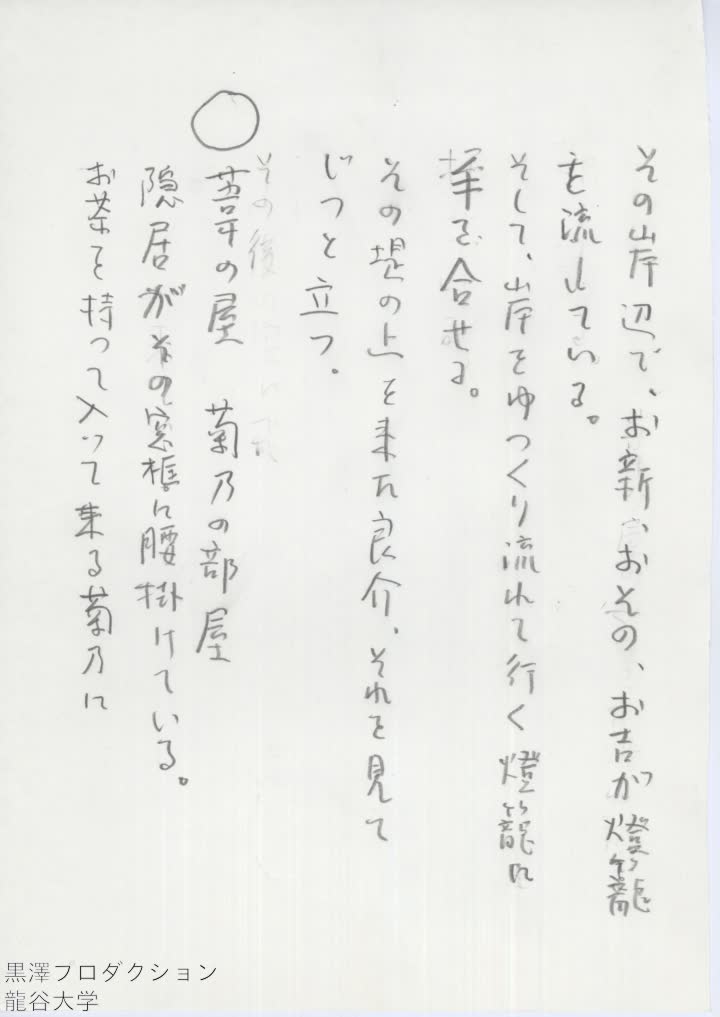 その岸辺で、お新、おその、お吉が燈籠
を流している。
そして、岸をゆっくり流れて行く燈籠に
掌を合せる。
その堤の上を来た良介、それを見て
じっと立つ。
○
葦の屋　菊乃の部屋
隠居がその窓框に腰掛けている。
お茶を持って入って来る菊乃に
黒澤プロダクション
龍谷大学